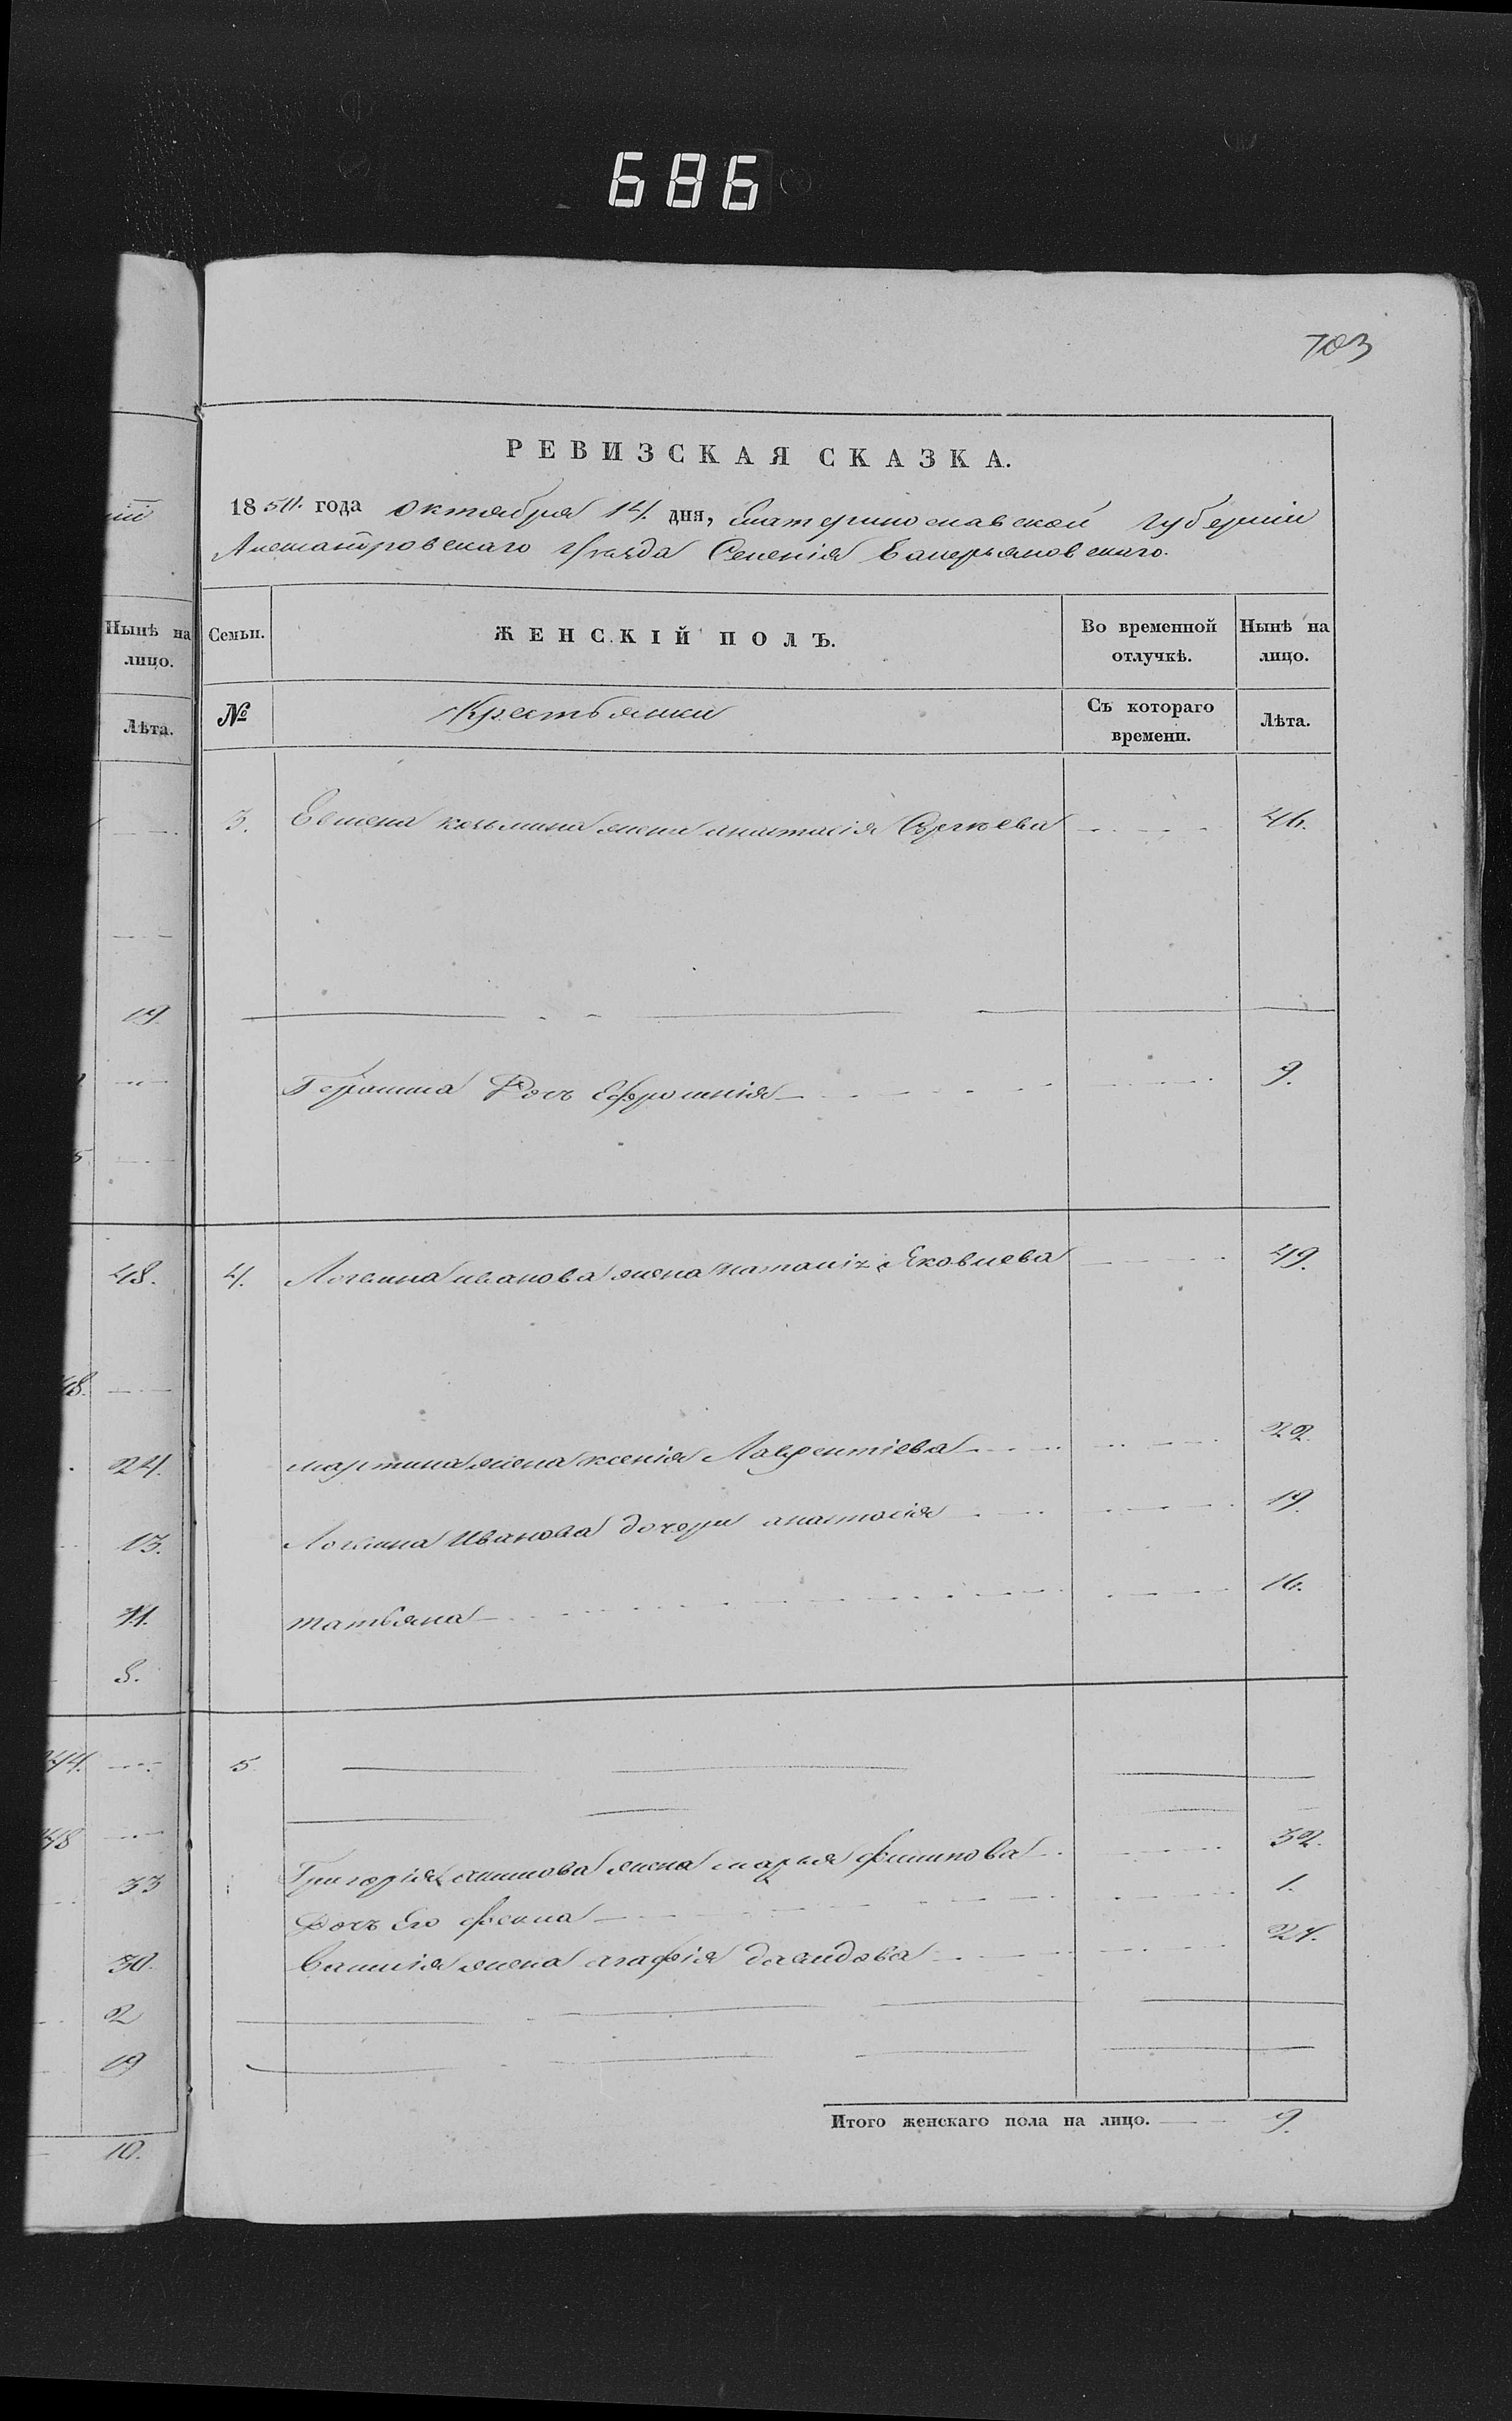 686
703
РЕВИЗСКАЯ СКАЗКА.
1850. года октября 14. дня, Екатеринославской губернии
Александровскаго уѣзда Селенія
Нынѣ на лицо.
Лѣта.
19.
48.
24.
13.
11.
8.
33
30.
2
19
10.
Семьи. ЖЕНСКІЙ ПОЛЪ. Во временной отлучкѣ. Нынѣ на лицо.
№ Крестьянки Съ котораго времени. Лѣта.
3. жена анастасія 46.
Дочь Ефросинія 9.
4. Логвина иванова жена наталія Яковлева 49.
мартина жена ксенія Лаврентіева 22.
Логвина Иванова дочери анастасія 19.
татьяна 16.
5
Григорія жена марья филипова 32.
Дочь Его фекла 1.
жена агафія давидова 21.
Итого женскаго пола на лицо. 9.